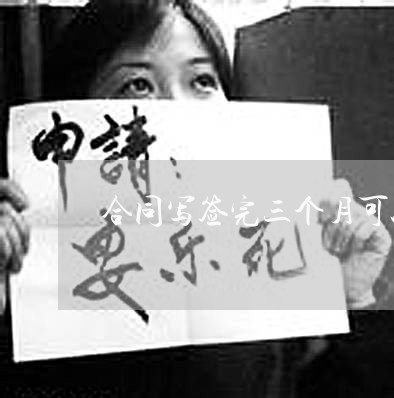 申請：
合同写签完三个月可
安乐死